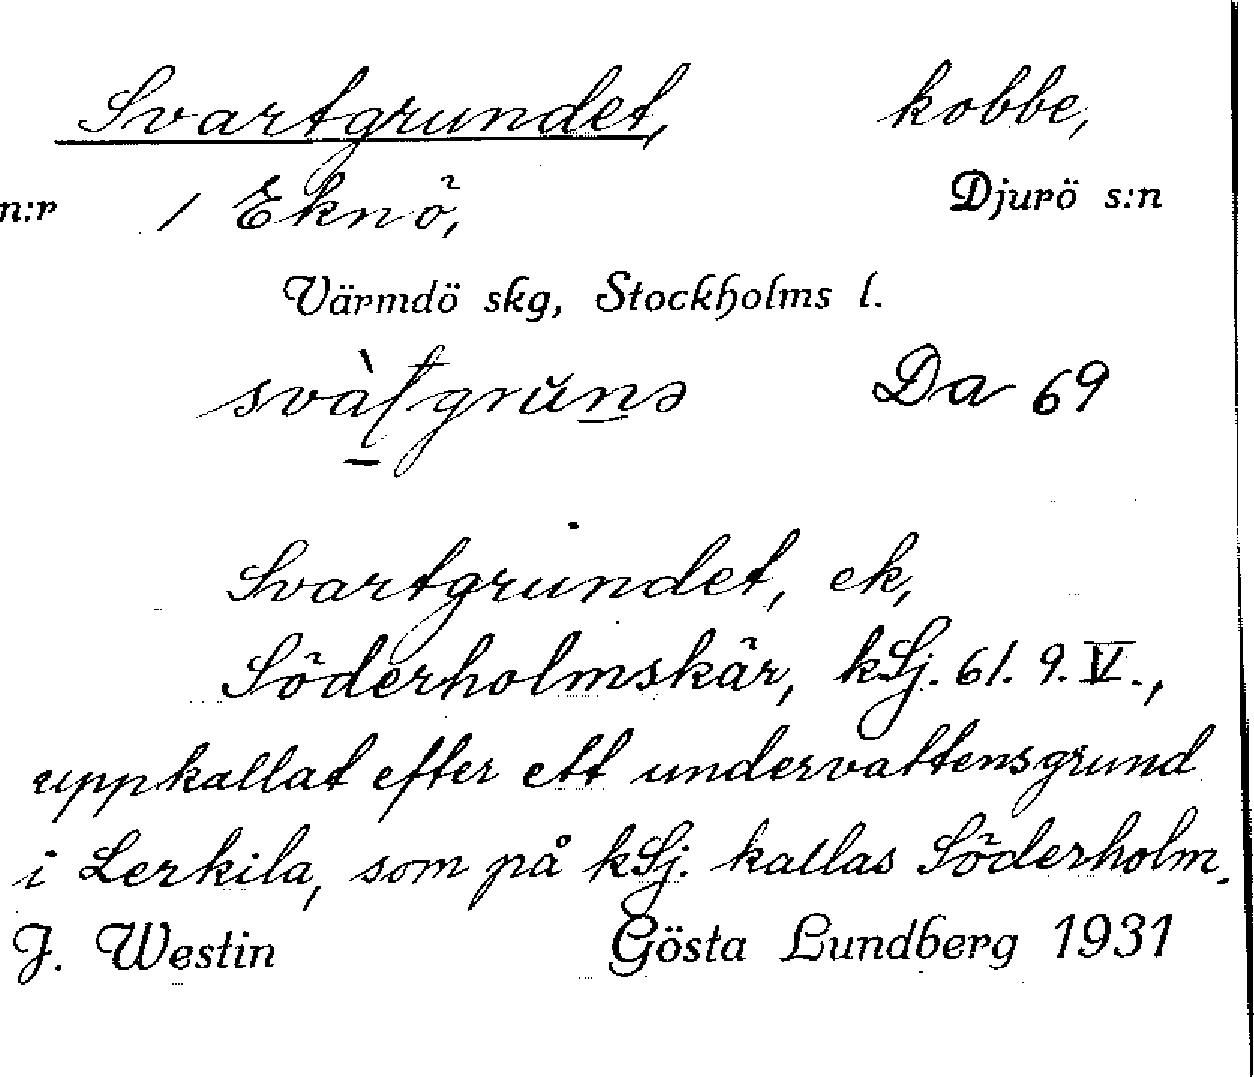 Svartgrundet, kobbe,
n:r 1 Eknö, Djurö s:n
Värmdö skg, Stockholms l.
Da 69
Svartgrundet, ek,
Söderholmskär, kSj. 61. 9. V.,
uppkallat efter ett undervattensgrund
i Lerkila, som på kSj. kallas Söderholm.
J. Westin Gösta Lundberg 1931